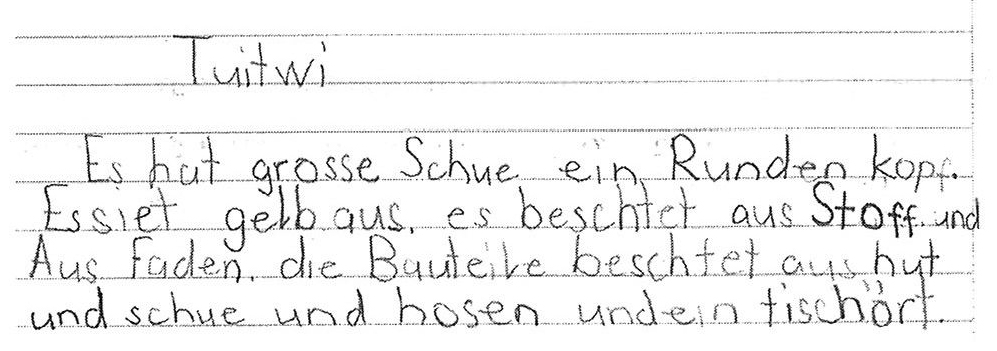 Tuitwi
Es hat grosse Schue ein Runden kopf.
Essiet gelb aus. es beschtet aus Stoff. und
Aus Faden. die Bauteile beschtet aus hut
und schue und hosen undein tischört.